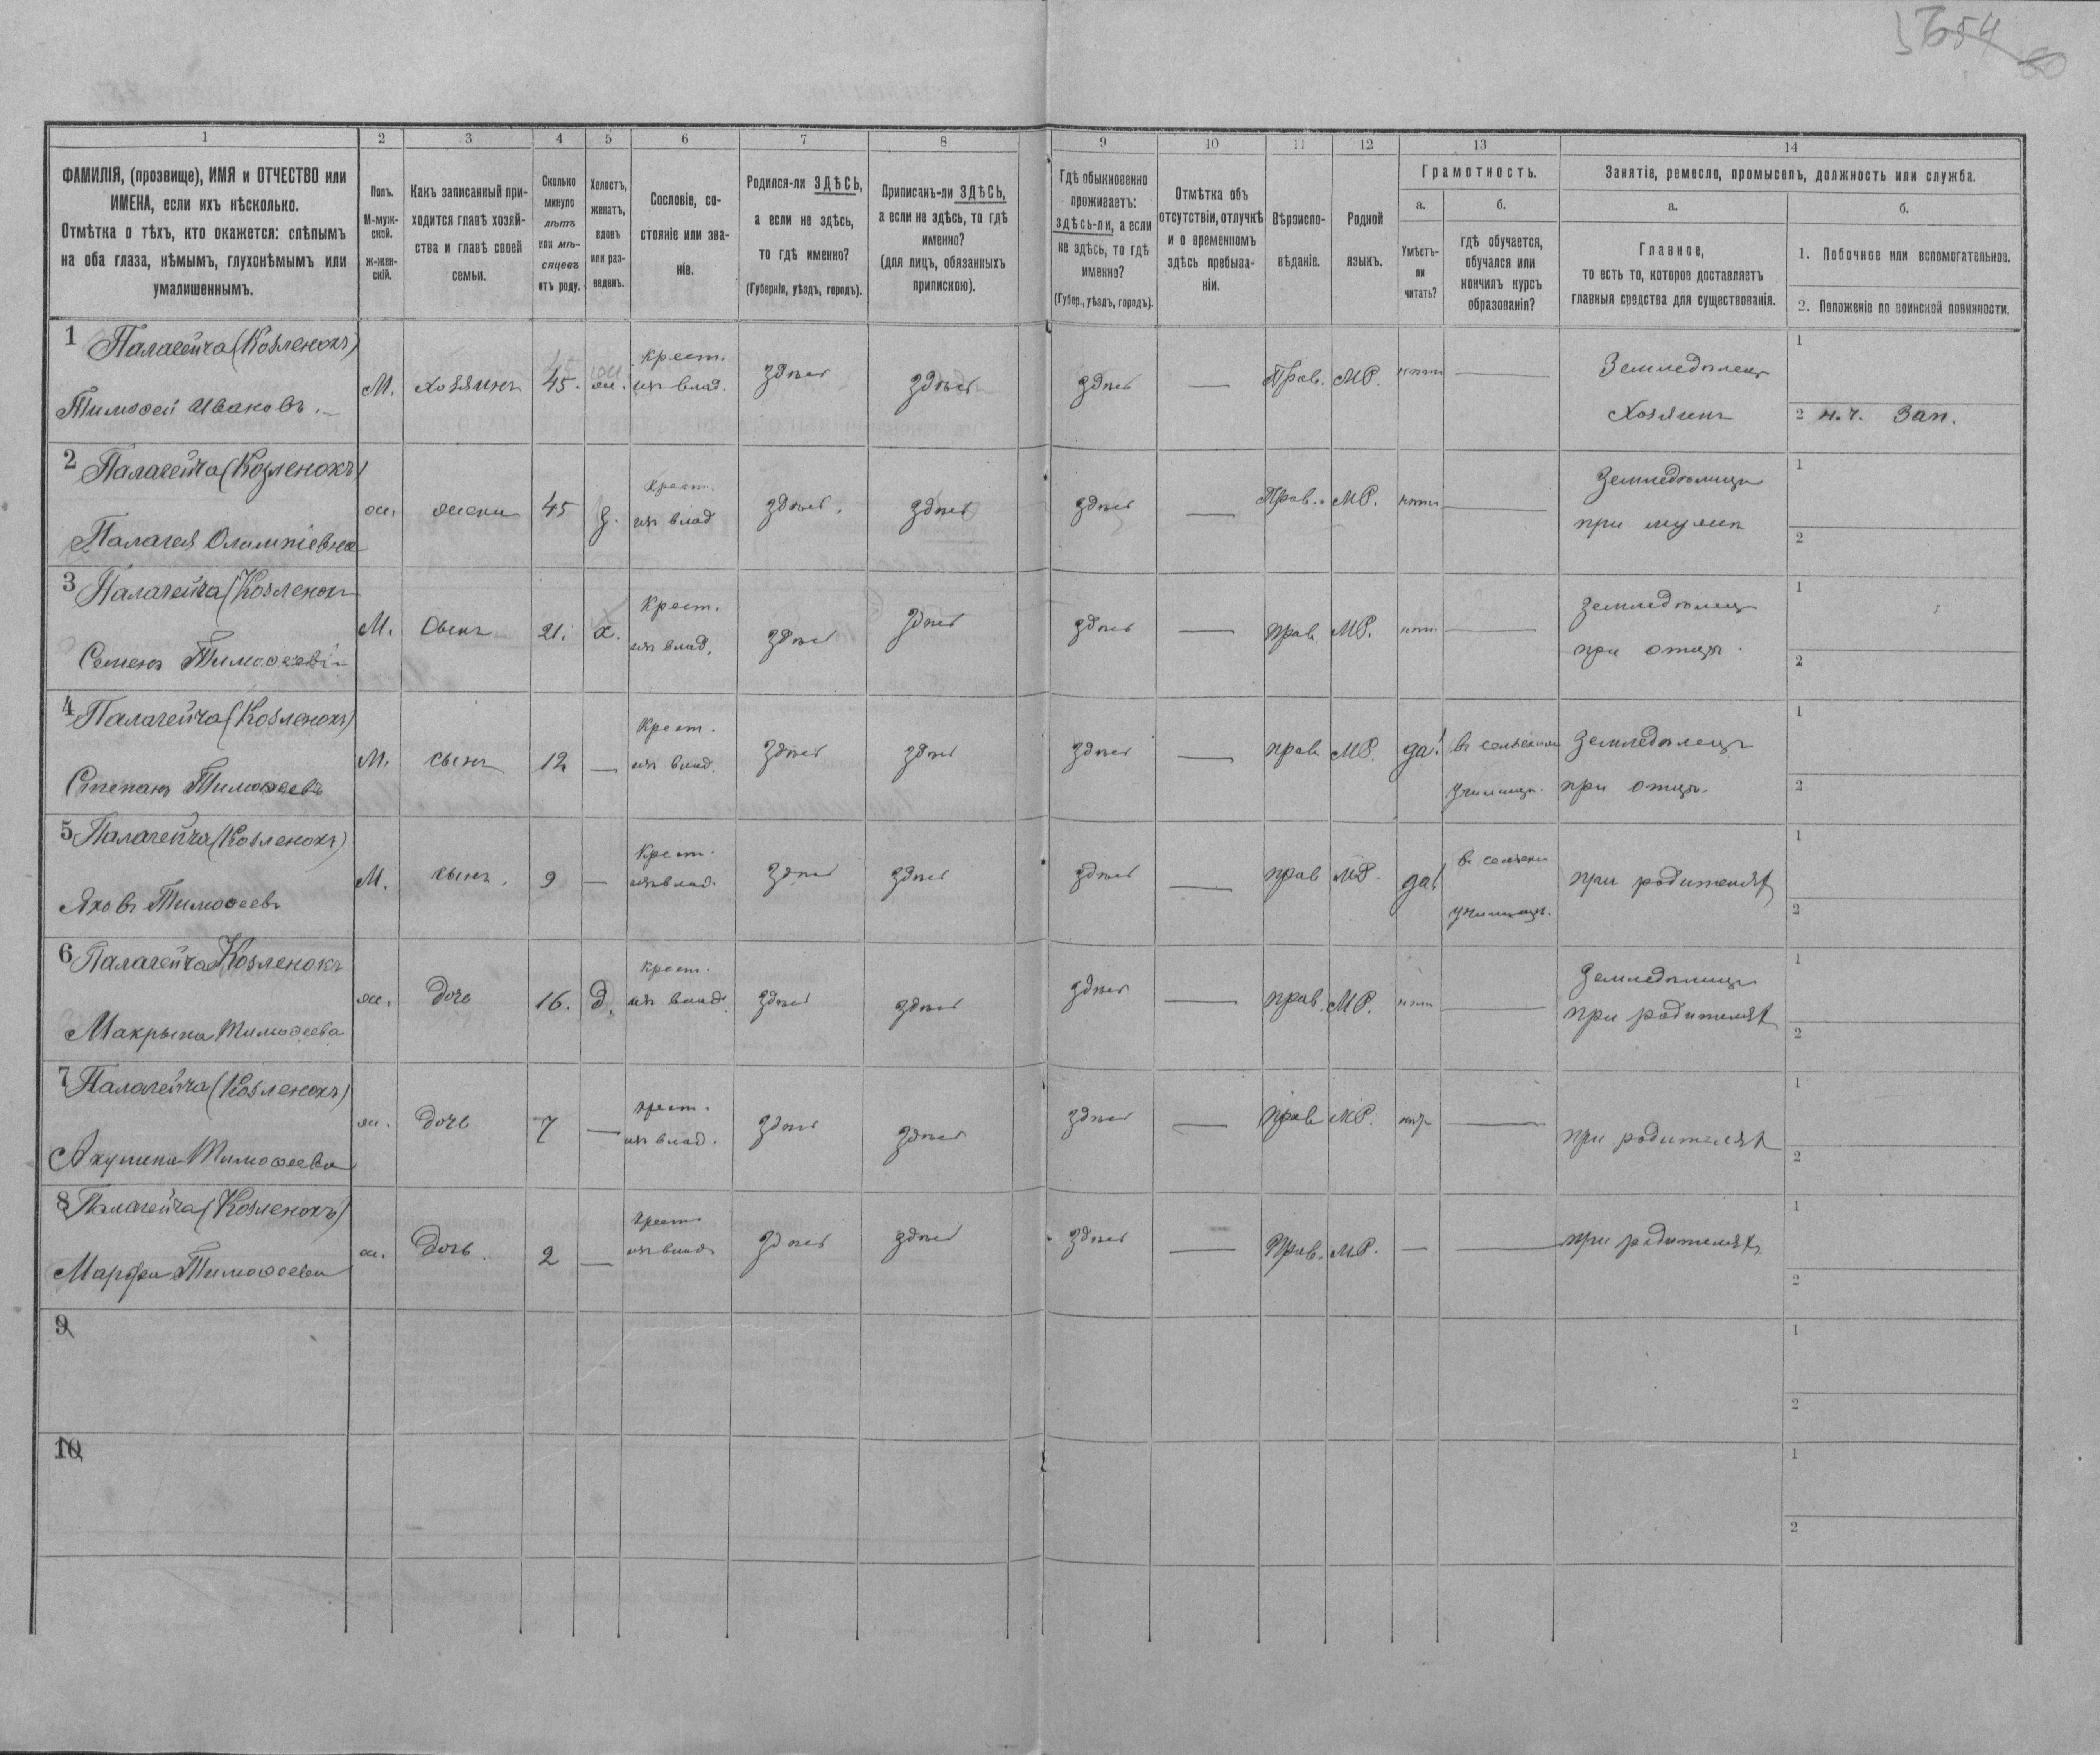 54
80
1 2 3 4 5 6 7 8 9 10 11 12 13 14
ФАМИЛІЯ, (прозвище), ИМЯ и ОТЧЕСТВО или
ИМЕНА, если ихъ нѣсколько.
Отмѣтка о тѣхъ, кто окажется: слѣпымъ
на оба глаза, нѣмымъ, глухонѣмымъ или
умалишеннымъ.
Полъ.
М-муж-
ской.
Ж-жен-
скій.
Какъ записанный при-
ходится главѣ хозяй-
ства и главѣ своей
семьи.
Сколько
минуло
лѣтъ
или мѣ-
сяцевъ
отъ роду.
Холостъ,
женатъ,
вдовъ
или раз-
веденъ.
Сословіе, со-
стояніе или зва-
ніе.
Родился-ли ЗДѢСЬ,
а если не здѣсь,
то гдѣ именно?
(Губернія, уѣздъ, городъ).
Приписанъ-ли ЗДѢСЬ,
а если не здѣсь, то гдѣ
именно?
(для лицъ, обязанныхъ
припискою).
Гдѣ обыкновенно
проживаетъ:
здѣсь-ли, а если
не здѣсь, то гдѣ
именно?
(Губер., уѣздъ, городъ).
Отмѣтка объ
отсутствіи, отлучкѣ
и о временномъ
здѣсь пребыва-
ніи.
Вѣроиспо-
вѣданіе.
Родной
языкъ.
Грамотность.
а.
Умѣетъ-
ли
читать?
б.
гдѣ обучается,
обучался или
кончилъ курсъ
образованія?
Занятіе, ремесло, промыселъ, должность или служба.
а.
Главное,
то есть то, которое доставляетъ
главныя средства для существованія.
б.
1. Побочное или вспомогательное.
2. Положеніе по воинской повинности.
1 Палагейча (Козленокъ)
Тимофей Ивановъ.
М. хозяинъ 45. ж. крест. изъ влад. здѣсь здѣсь здѣсь — Прав. МР. нѣтъ — Земледѣлецъ
Хозяинъ
1
2 н.ч. Зап.
2 Палагейча (Козленокъ)
Палагея Олимпіевна
ж. жена 45 з. Крест. изъ влад здѣсь. здѣсь здѣсь — Прав. МР. нѣтъ — Земледѣлица
при мужѣ
1
2
3 Палагейча (Козленокъ
Семенъ Тимофеевъ
М. Сынъ 21. х. Крест. изъ влад. здѣсь здѣсь здѣсь — прав МР. нѣтъ — Земледѣлецъ
при отцѣ.
1
2
4 Палагейча (Козленокъ)
Степанъ Тимофеевъ
М. сынъ 12 — Крест. изъ влад. здѣсь здѣсь здѣсь — прав МР. да! въ сельском училищѣ. Земледѣлецъ
при отцѣ.
1
2
5 Палагейча (Козленокъ)
Яковъ Тимофеевъ
М. сынъ. 9 — Крест. изъ влад. здѣсь здѣсь здѣсь — прав МР. да! въ сельском училищѣ. при родителях
1
2
6 Палагейча Козленокъ
Макрына Тимофеева
ж. дочь 16. д. Крест. изъ влад. здѣсь здѣсь здѣсь — прав. МР. нѣтъ — Земледѣлица
при родителях
1
2
7 Палагейча (Козленокъ)
Акулина Тимофеева
ж. дочь 7 — крест. изъ влад. здѣсь здѣсь здѣсь — прав МР. нѣт — при родителях
1
2
8 Палагейча (Козленокъ)
Марфа Тимофеева
ж. Дочь. 2 — крест. изъ влад. здѣсь здѣсь здѣсь — Прав. МР. — — при родителях
1
2
9
1
2
10
1
2